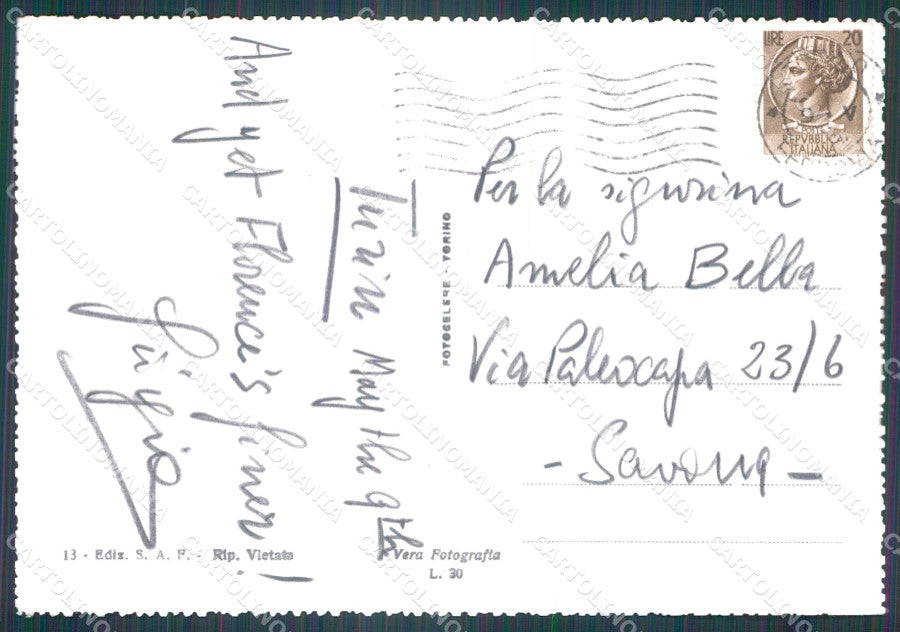 Turin May the 9th
And yet Florence's finer!
Per la signorina
Amelia Bella
Via Paleocapa 23/6
- Savona -
FOTOCELERE - TORINO
13 - Ediz. S. A. F. - Rip. Vietata
Vera Fotografia
L. 30
LIRE 20
POSTE
REPVBBLICA
ITALIANA
CARTOLINOMANIA